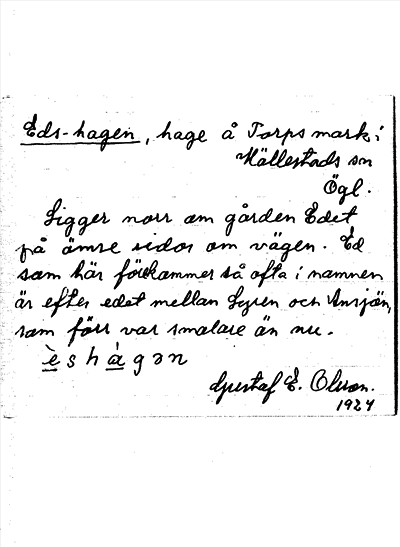 Eds-hagen, hage å Torps mark i
Hällestads sn
Ögl.
Ligger norr om gården Edet
på ömse sidor om vägen. Ed
som här förekommer så ofta i namnen
är efter edet mellan Lyren och Ansjön,
som förr var smalare än nu.
è s h à g ə n
Gustaf E. Olsson.
1924